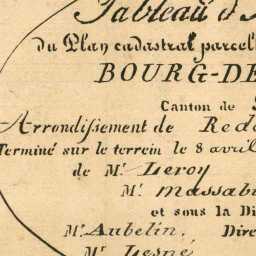 Tableau d'
du Plan cadastral parcel
BOURG-DE
Canton de
Arrondissement de Red
Terminé sur le terrein le 8 avril
de Mr. Leroy
Mr. Massab
et sous la Di
Mr. Aubelin, Dire
Mr. Lesné